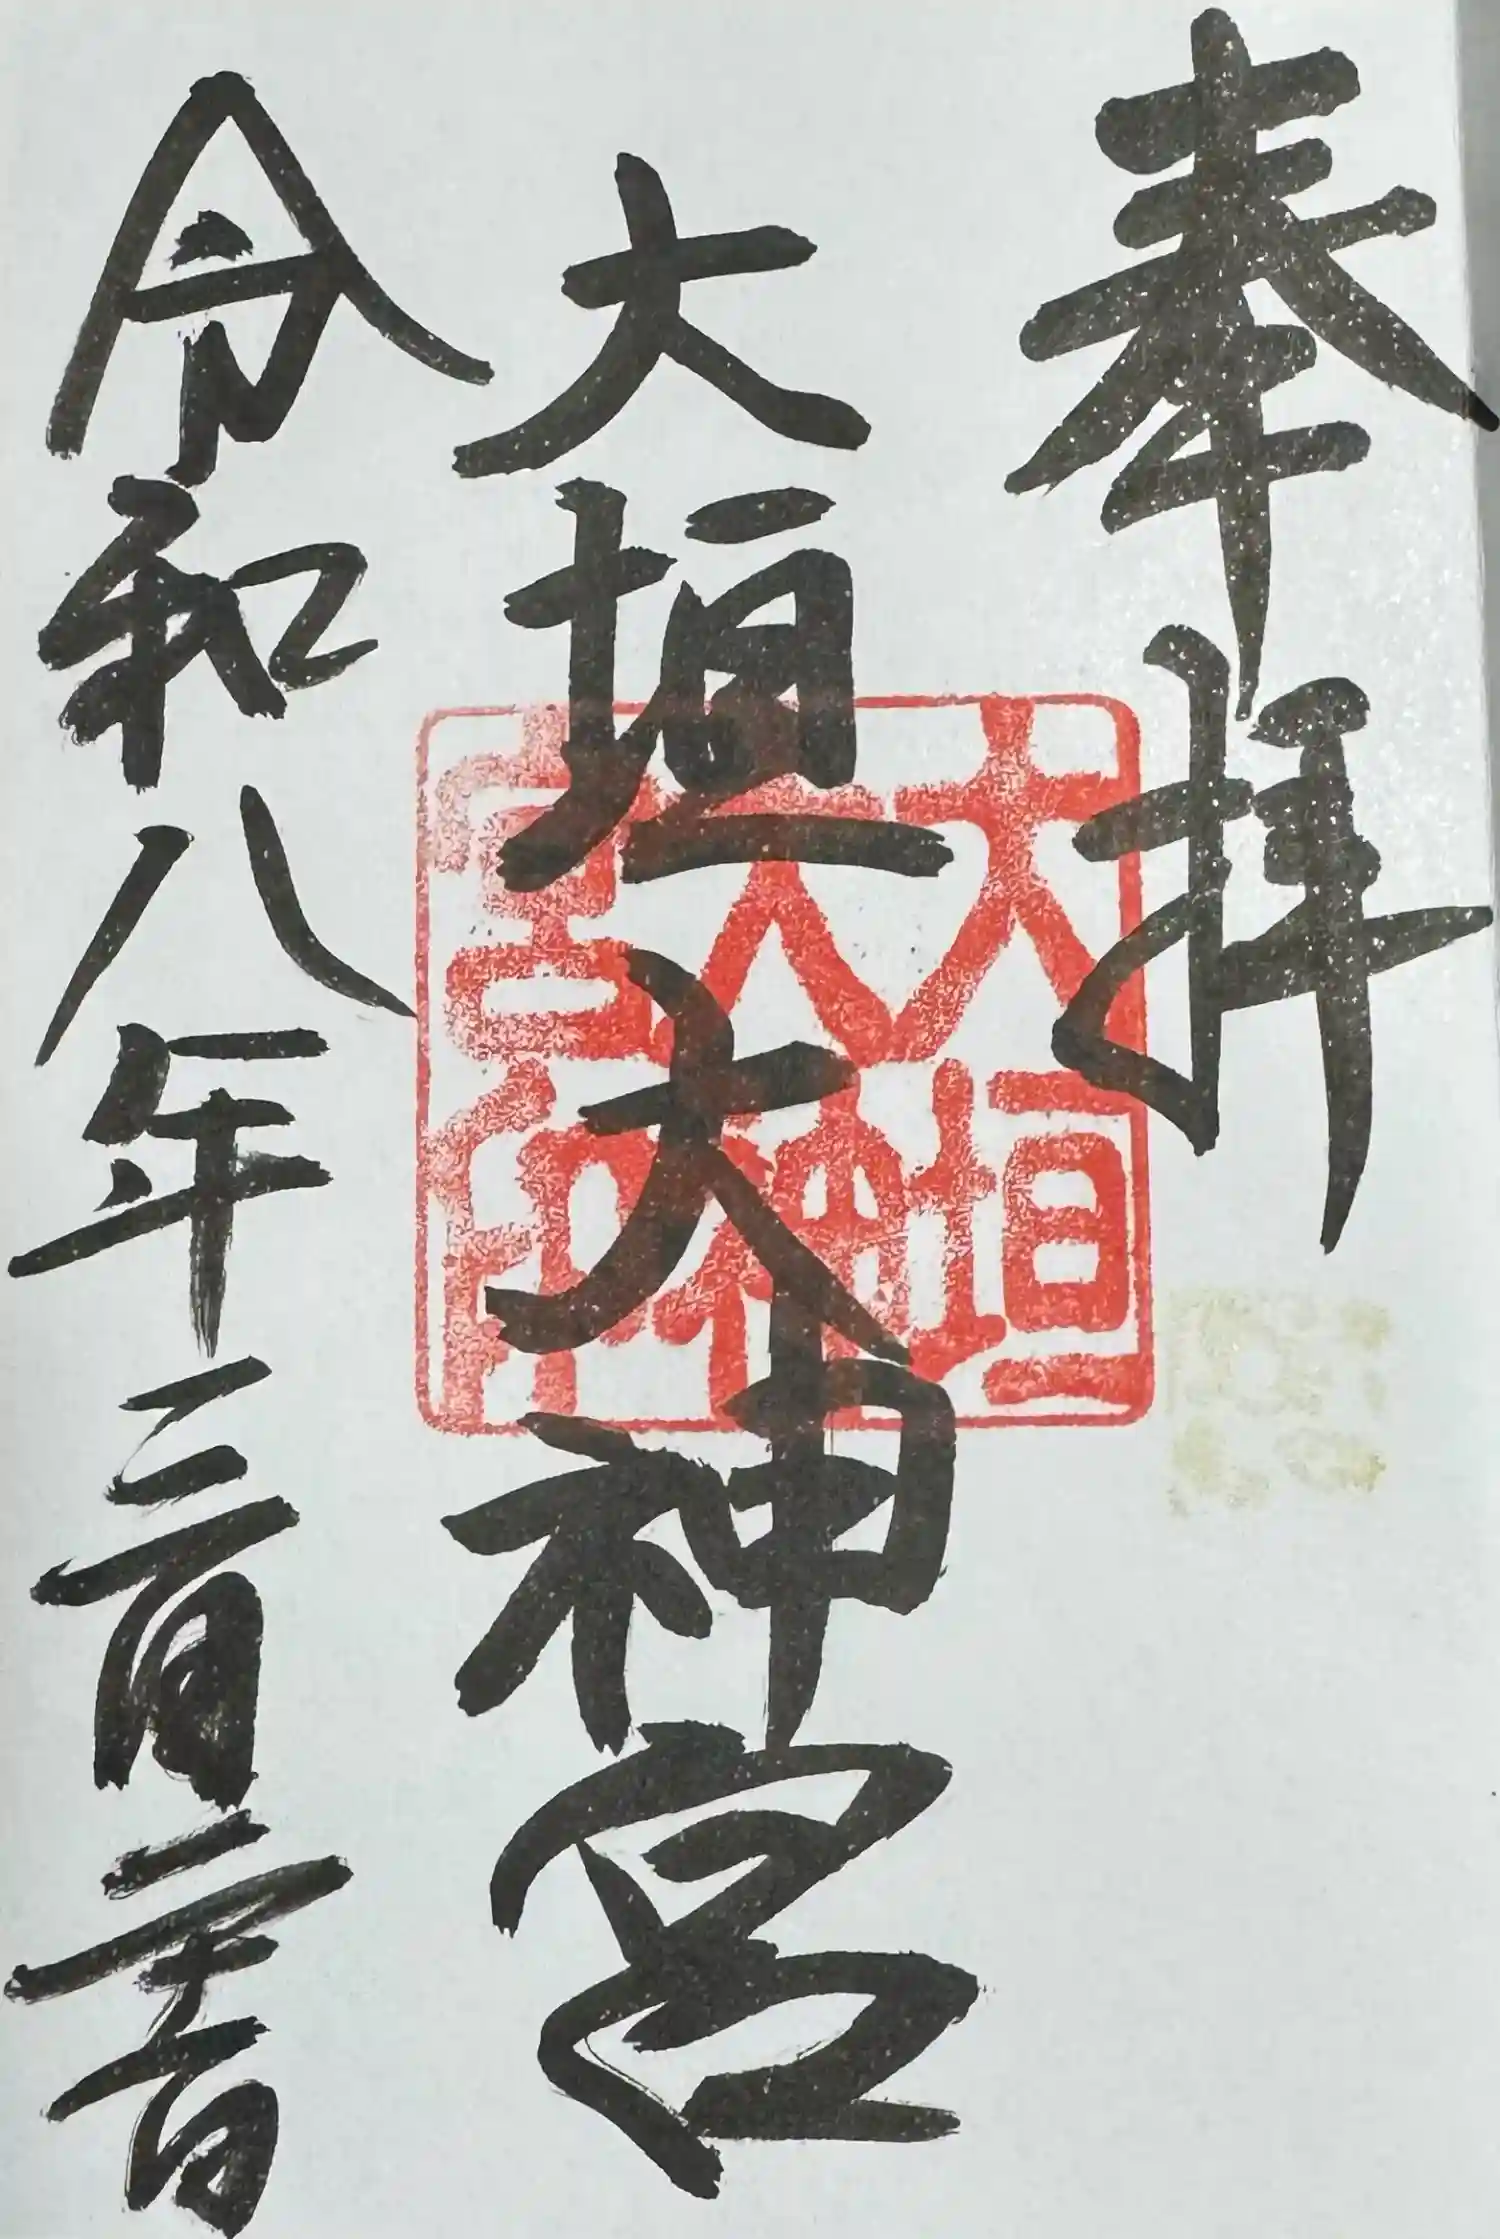 奉拝
大垣大神宮
令和八年三月二十一日
大垣
大神
宮印